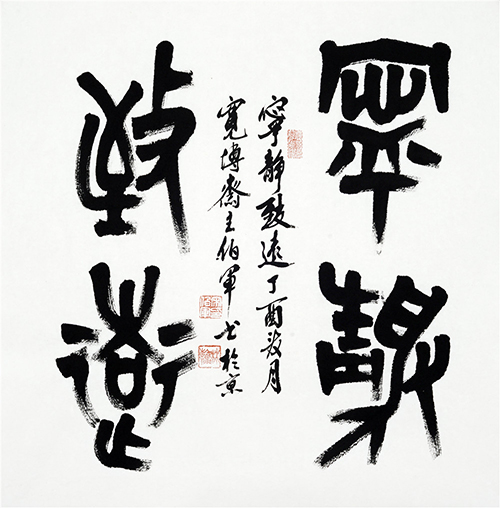 寧靜
致遠
寧靜致遠丁酉
月
寬博齋主伯軍書於京